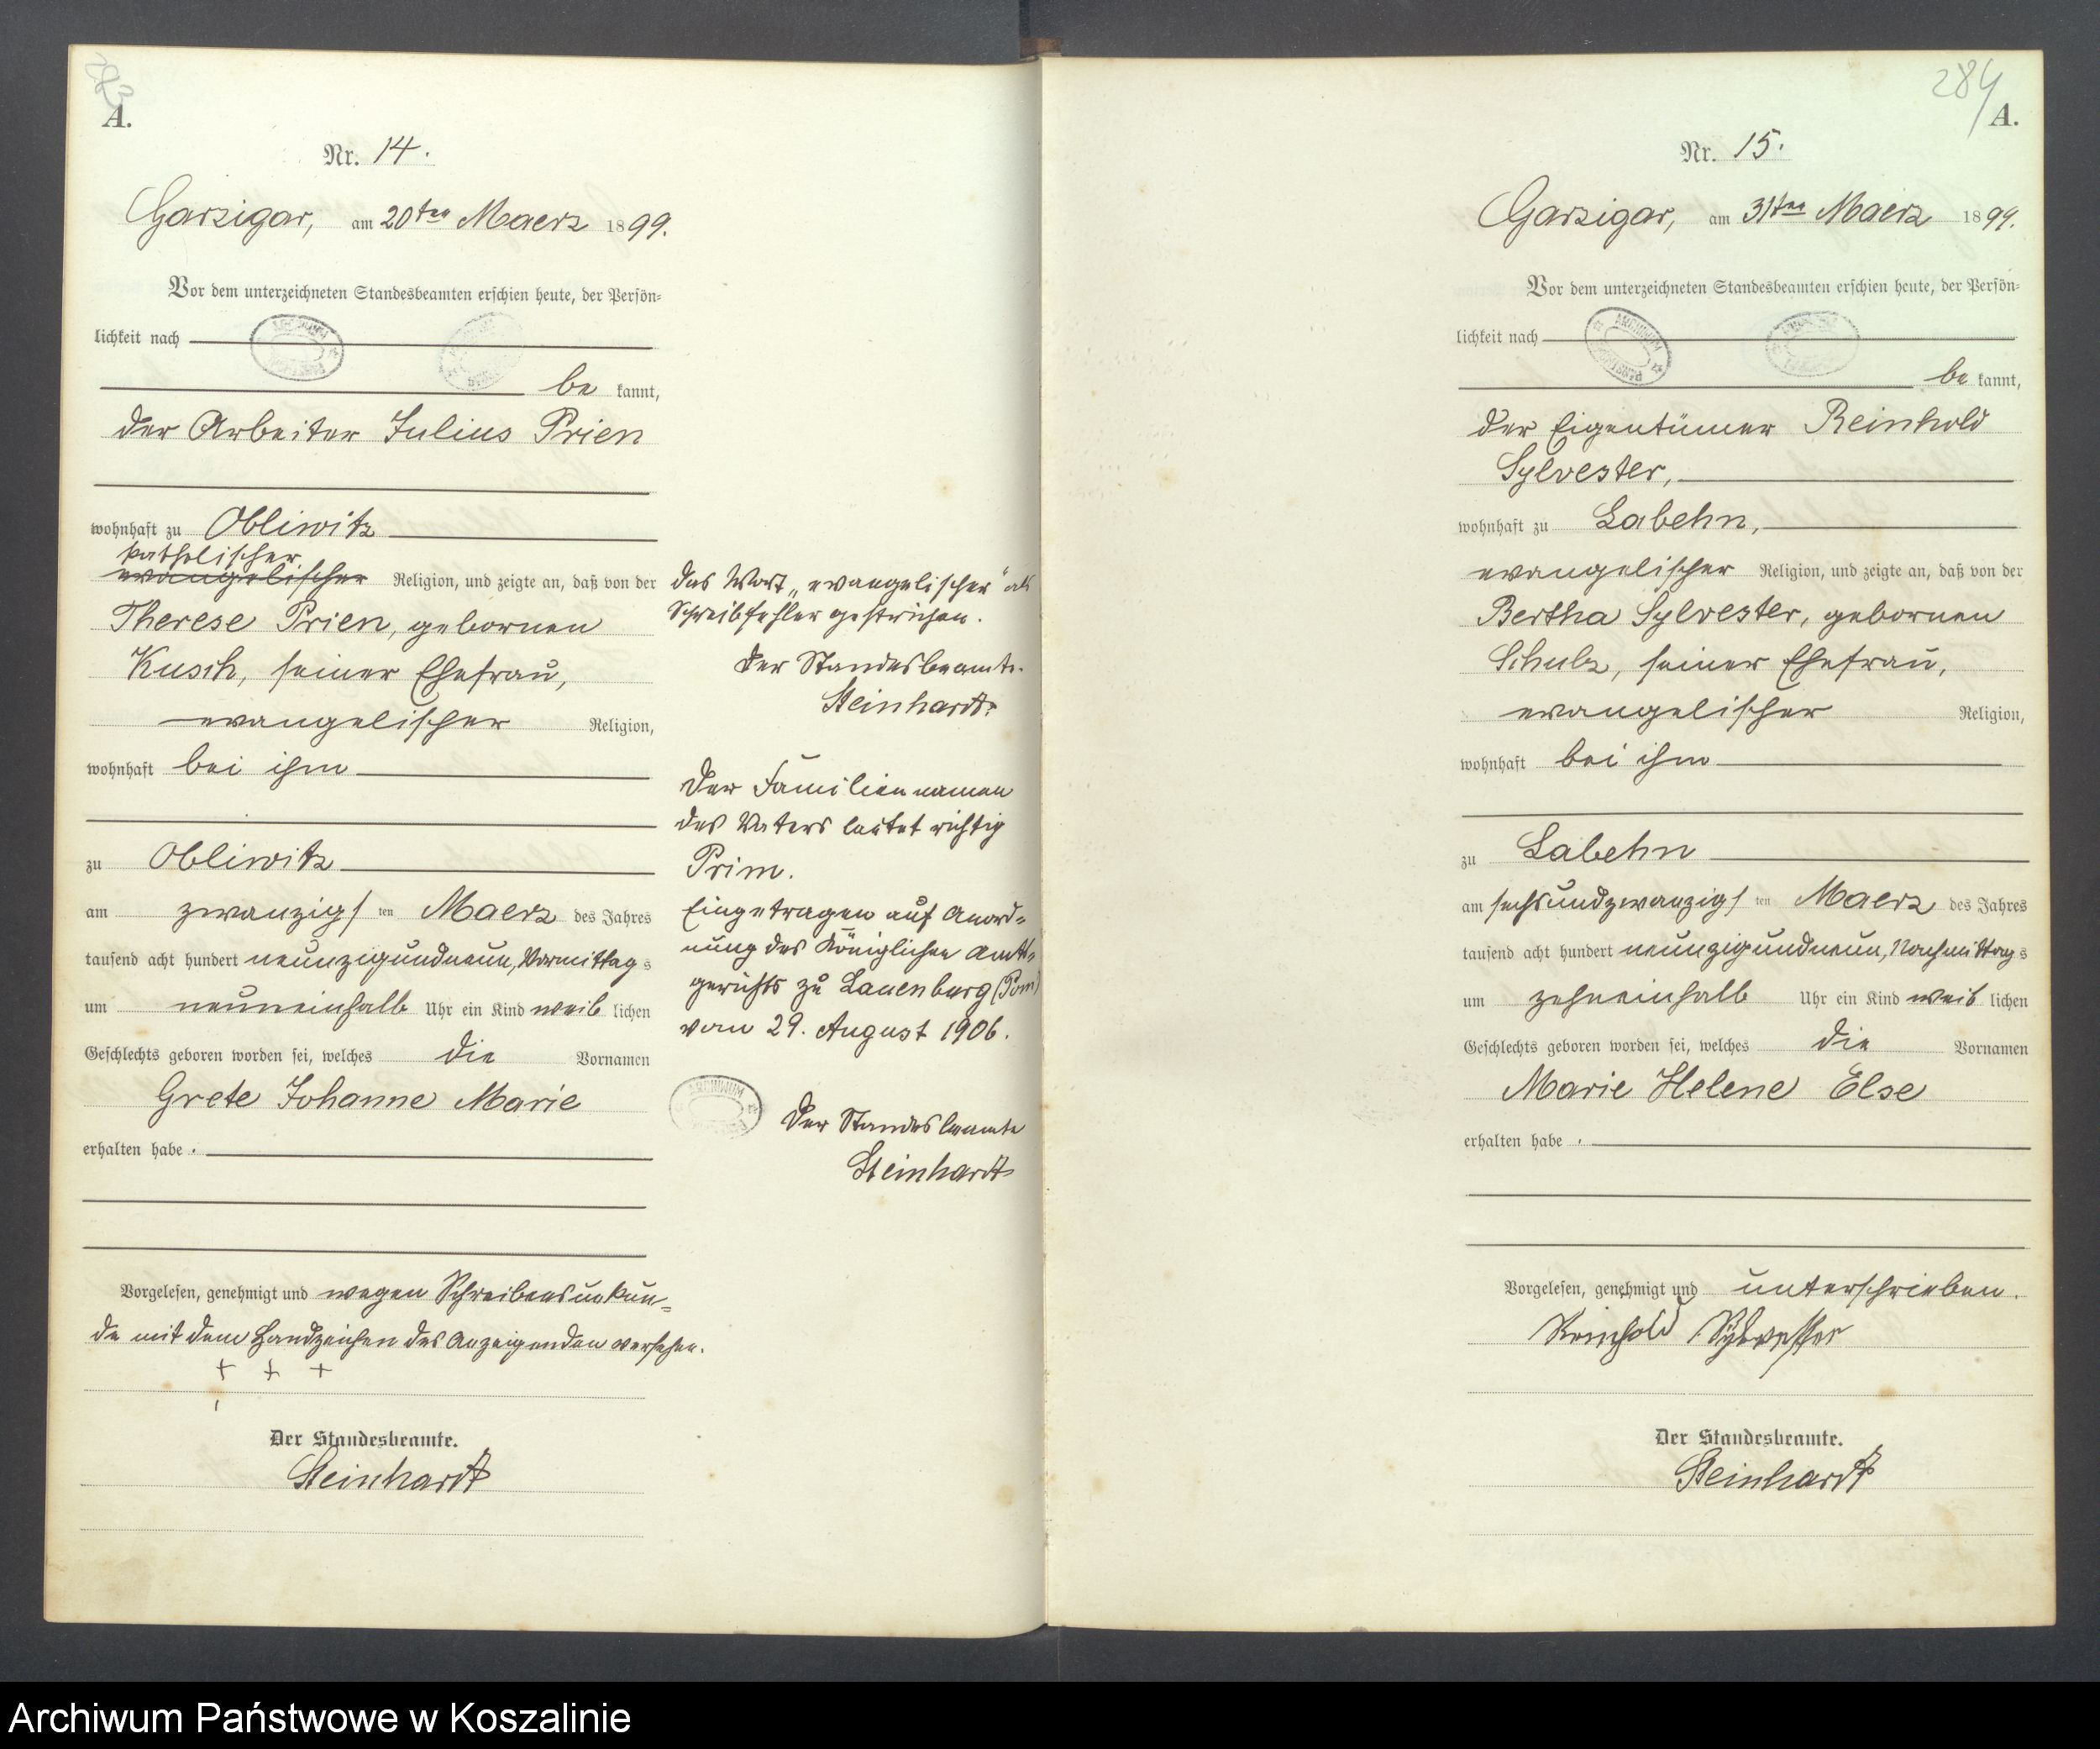 A.
Nr. 14.
Garzigar, am 20ten Maerz 1899.
Vor dem unterzeichneten Standesbeamten erschien heute, der Persön-
lichkeit nach
be kannt,
der Arbeiter Julius Prien
wohnhaft zu Obliwitz
katholischer
evangelischer Religion, und zeigte an, daß von der
Therese Prien, gebornen
Kusch, seiner Ehefrau,
evangelischer Religion,
wohnhaft bei ihm
zu Obliwitz
am zwanzigsten Maerz des Jahres
tausend acht hundert neunzigundneun, Vormittags
um neuneinhalb Uhr ein Kind weiblichen
Geschlechts geboren worden sei, welches die Vornamen
Grete Johanne Marie
erhalten habe.
Vorgelesen, genehmigt und wegen Schreibensunkun-
de mit dem Handzeichen des Anzeigenden versehen.
+ + +
Der Standesbeamte.
Steinhardt
das Wort „evangelischer“ als
Schreibfehler gestrichen.
Der Standesbeamte.
Steinhardt.
Der Familiennamen
des Vaters lautet richtig
Prim.
Eingetragen auf Anord-
nung des Königlichen Amts-
gerichts zu Lauenburg (Pom)
vom 29. August 1906.
ARCHIWUM
Der Standesbeamte
Steinhardt
284
A.
Nr. 15.
Garzigar, am 31ten Maerz 1899.
Vor dem unterzeichneten Standesbeamten erschien heute, der Persön-
lichkeit nach
be kannt,
der Eigentümer Reinhold
Sylvester,
wohnhaft zu Labehn,
evangelischer Religion, und zeigte an, daß von der
Bertha Sylvester, gebornen
Schulz, seiner Ehefrau,
evangelischer Religion,
wohnhaft bei ihm
zu Labehn
am sechsundzwanzigsten Maerz des Jahres
tausend acht hundert neunzigundneun, Nachmittags
um zehneinhalb Uhr ein Kind weiblichen
Geschlechts geboren worden sei, welches die Vornamen
Marie Helene Else
erhalten habe.
Vorgelesen, genehmigt und unterschrieben.
Reinhold Sylvester
Der Standesbeamte.
Steinhardt
Archiwum Państwowe w Koszalinie